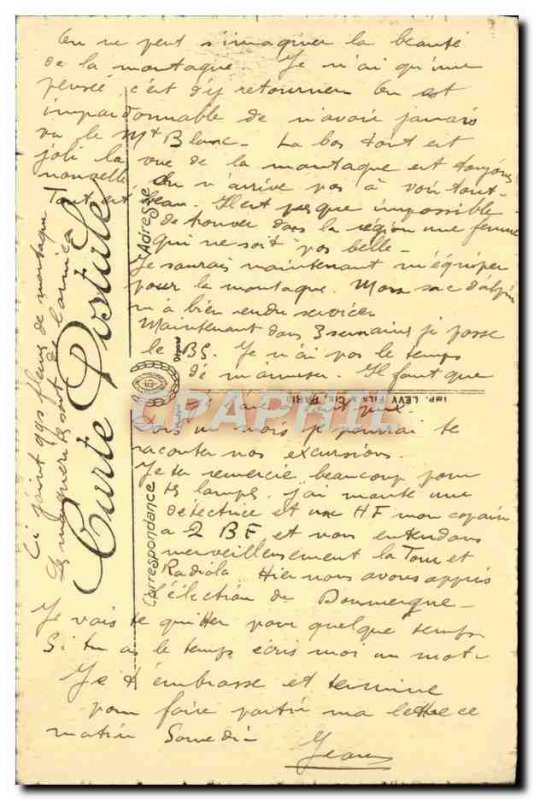 On ne peut s'imaginer la beauté
de la montagne. Je n'ai qu'une
pensée c'est d'y retourner On est
impardonnable de n'avoir jamais
vu le Mt Blanc. La bas tout est
joli la vue de la montagne est toujours
nouvelle. On n'arrive pas à voir tout
Tout est beau. Il est presque impossible
de trouver dans la région une femme
qui ne soit pas belle.
Je saurais maintenant m'équiper
pour la montagne. Mon sac d'alpin
m'a bien rendu service.
Maintenant dans 3 semaines je passe
le BS. Je n'ai pas le temps
de m'amuser. Il faut que
avec
un mois je pourrai te
raconter nos excursions.
Je te remercie beaucoup pour
ts lampe. j'ai monté une
détectrice et une HF mon copain
a 2 BF et nous entendons
merveilleusement la Tour et
Radiola. Hier nous avons appris
l'élection de Doumergue
Je vais te quitter pour quelque temps
Si tu as le temps écris moi un mot.
Je t'embrasse et termine
pour faire partir ma lettre ce
matin Samedi
Jean
Ci joint qqs fleurs de montagne
Les marguerites sont de l'arnica !
Carte Postale
Correspondance
Adresse
Déposé
IMP. LEVY FILS & Cie, PARIS
CPAPHIL